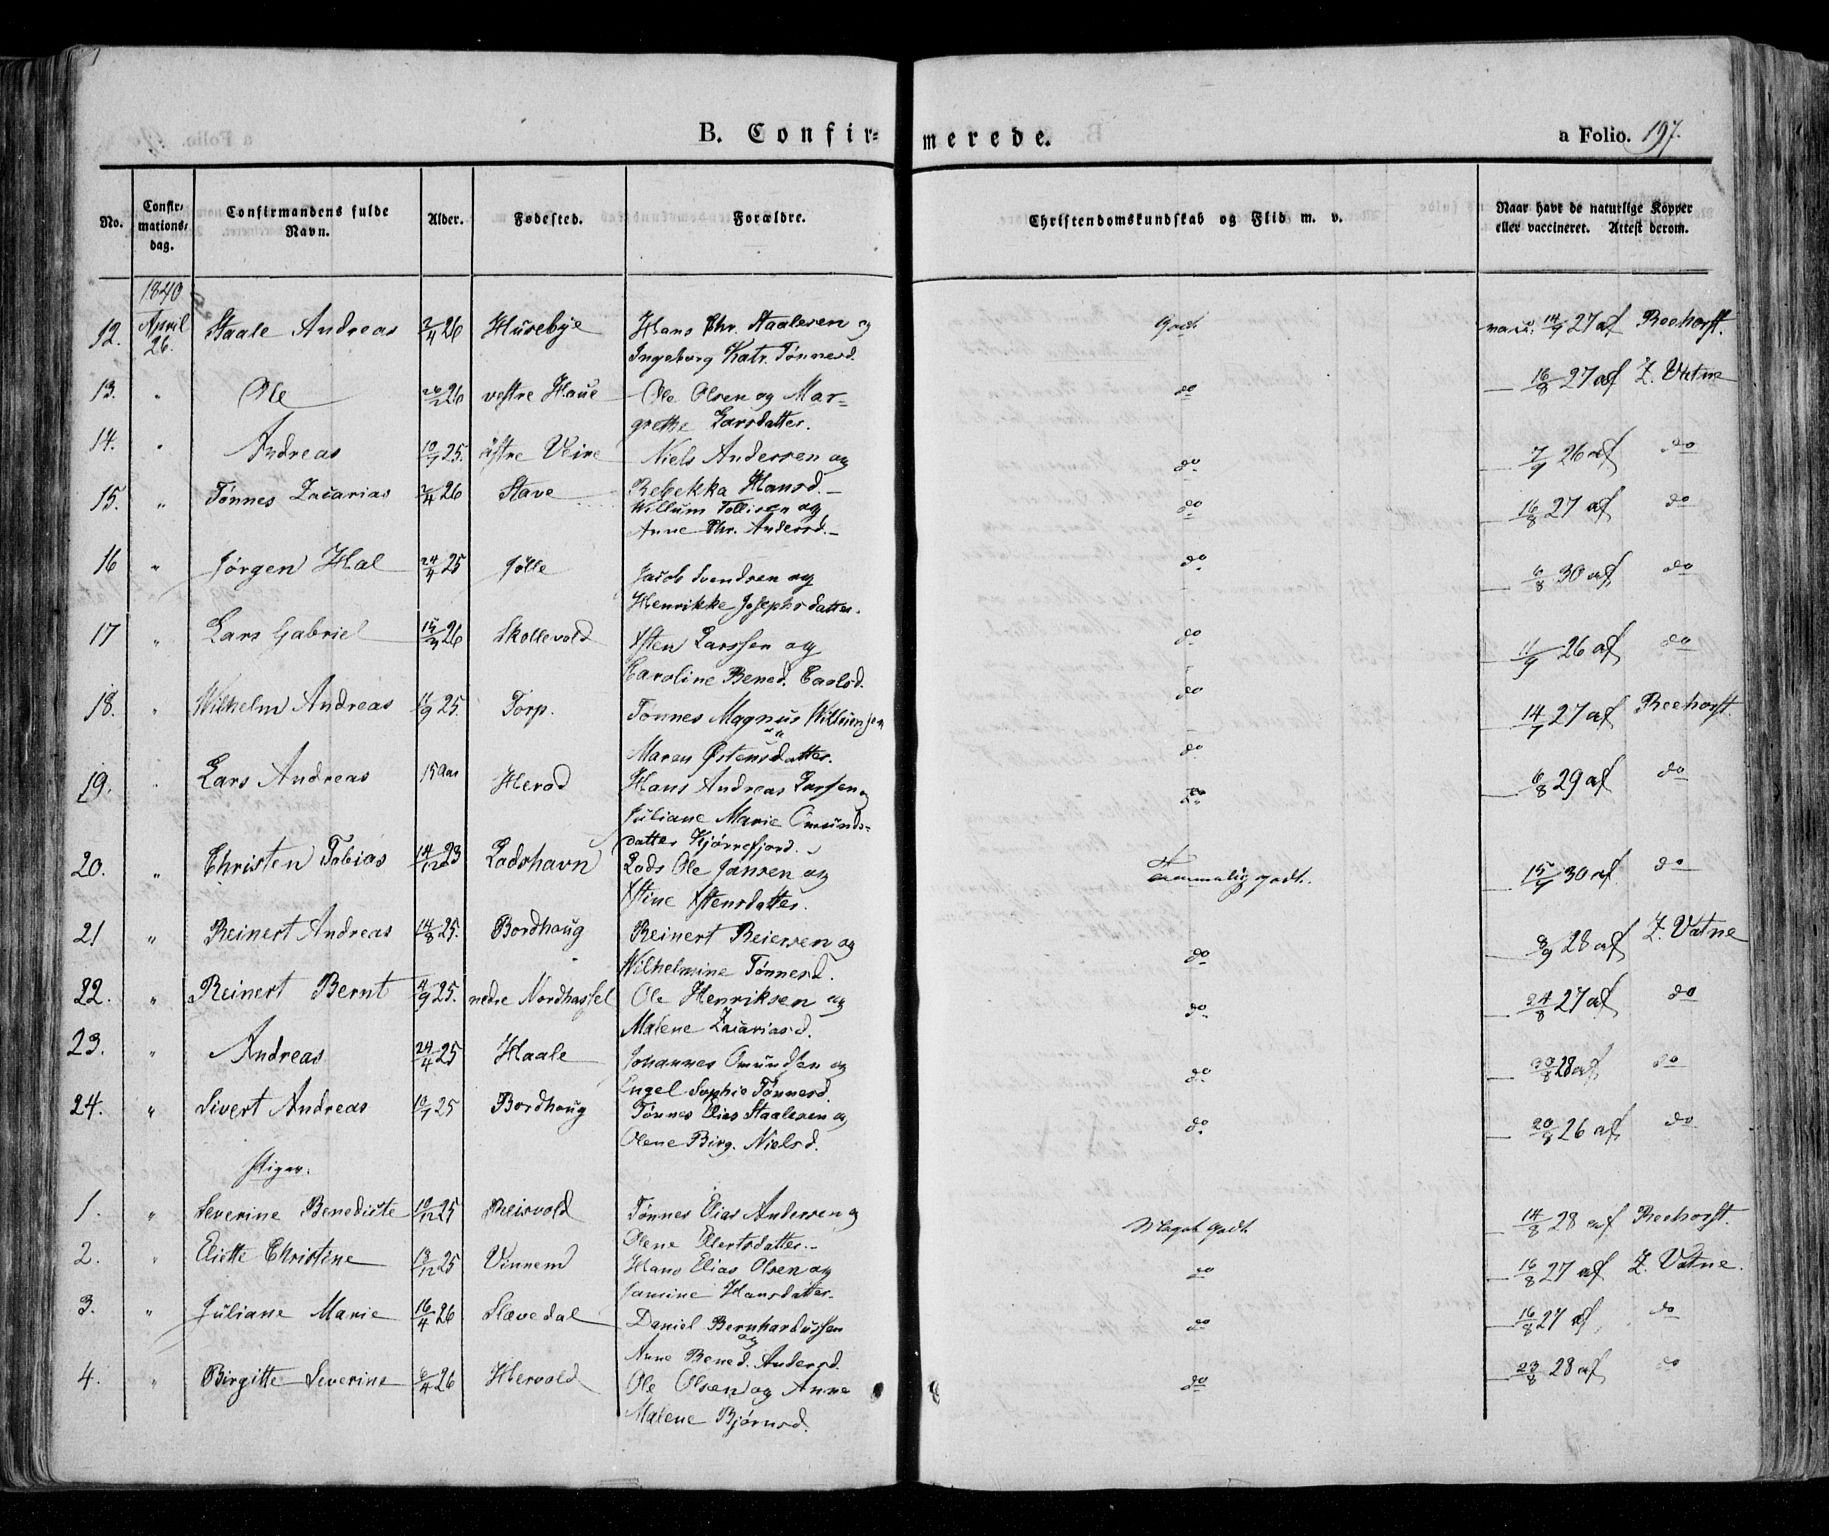 B. Confirmerede. a Folio. 197.
No. Confirmationsdag. Confirmandens fulde Navn. Alder. Fødested. Forældre. Christendomskundskab og Flid m. v. Naar havt de naturlige Kopper eller vaccineret. Attest derom.
1840
12. April 26. Staale Andreas 2/4 26 Husebye Hans Chr. Staalesen og godt vacc. 14/7 27 af Reehorst.
Ingeborg Katr. Tønnesd.
13. " Ole 26 vestre Haue Ole Olsen og Mar- do — 16/8 27 af Z. Vatne
grethe Larsdatter.
14. " Andreas 10/7 25. østre Veire Niels Andersen og do — 7/9 26 af do
Rebekka Hansd. —
15. " Tønnes Zacarias 2/4 26 Stave Willum Tollisen og do — 16/8 27 af do
Anne Chr. Andersd. —
16 " Jørgen Hal 24/4 25 Jølle Jacob Svendsen og do — 6/8 30 af do
Henrikke Josephsdatter.
17 " Lars Gabriel 15/3 26 Skollevold Østen Larssen og do — 11/9 26 af do
Caroline Bened. Carlsd.
18. " Wilhelm Andreas 11/9 25. Torp. Tønnes Magnus Willumsen do — 14/7 27 af Reehorst.
Maren Østensdatter. do
19. " Lars Andreas 15 Aar Herad Hans Andreas Larsen og do — 6/8 29 af do
Juliane Marie Omunds-
datter Kjørrefjord.
20. " Christen Tobias 14/12 23 Ladshavn Lods Ole Jansen og Temmelig godt. — 15/7 30 af do
Stine Østensdatter.
21 " Reinert Andreas 14/8 25. Bordhaug Reinert Reiersen og do — 8/9 28 af Z. Vatne
Wilhelmine Tønnesd.
22. " Reinert Bernt 4/9 25. nedre Nordhassel Ole Henriksen og do — 24/8 27 af do
Malene Zacariasd.
23. " Andreas 24/4 25 Haale Johannes Omundsen og do — 28 af do
Engel Sophie Tønnesd.
24. " Sivert Andreas 10/7 25 Bordhaug Tønnes Elias Staalesen og do — 20/8 26 af do
Olene Birg. Nielsd.
Piger.
1. " Severine Benedicte 10/12 25 Reisvold Tønnes Elias Andersen og Meget godt — 14/8 28 af Reehorst.
Olene Elertsdatter. —
2. " Eliette Christine 13/12 25 Vinnem Hans Elias Olsen og do — 16/8 27 af Z. Vatne.
Jamine Hansdatter.
3. " Juliane Marie 16/4 26 Slævedal Daniel Bernhardussen do — 16/8 27 af do
og
Anne Bened. Andersd.
4. " Birgitte Severine 6/4 26 Hervold Ole Olsen og Anne do — 23/8 28 af do
Malene Bjørnsd.